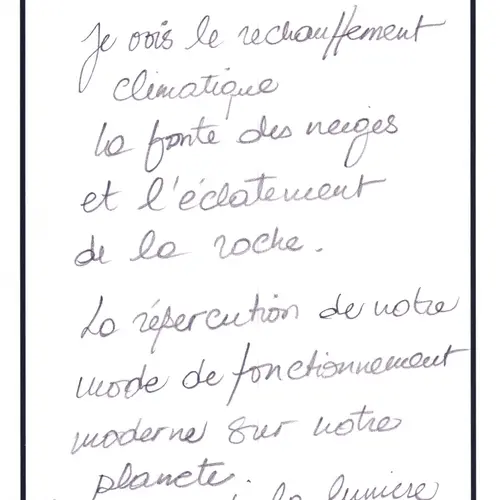 Je vois le rechauffement
climatique
La fonte des neiges
et l'éclatement
de la roche.
La répercution de notre
mode de fonctionnement
moderne sur notre
planete.
la lumiere